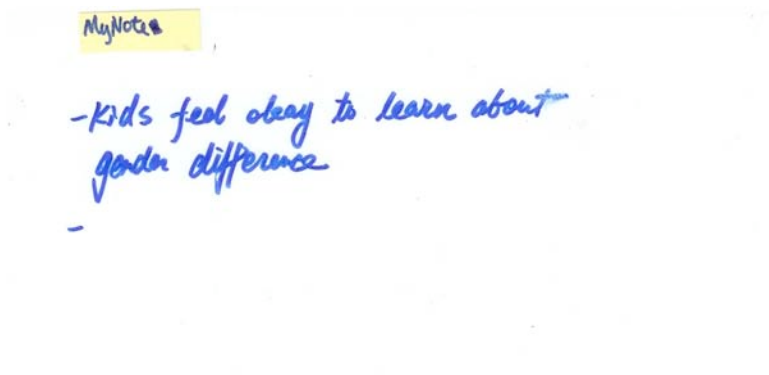 MyNotes
-Kids feel okay to learn about
gender difference
-